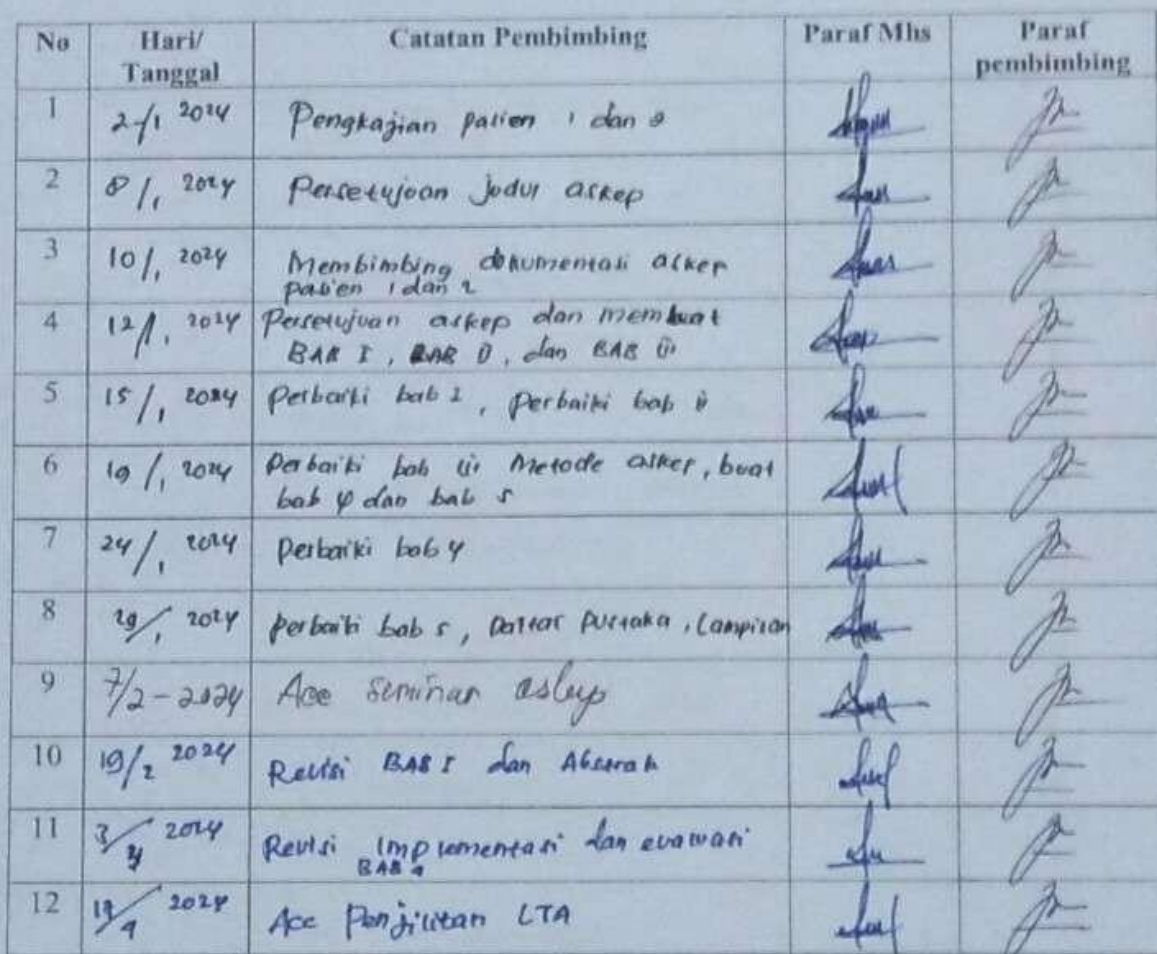 No Hari/ Catatan Pembimbing Paraf Mhs Paraf
Tanggal pembimbing
1 2/1 2024 Pengkajian pasien 1 dan 2
2 8/1 2024 Persetujuan judul askep
3 10/1 2024 Membimbing dokumentasi askep
pasien 1 dan 2
4 12/1 2024 Persetujuan askep dan membuat
BAB I, BAB II, dan BAB III
5 15/1 2024 Perbaiki bab 1, perbaiki bab ii
6 19/1 2024 Perbaiki bab iii Metode askep, buat
bab 4 dan bab 5
7 24/1 2024 Perbaiki bab 4
8 29/1 2024 perbaiki bab 5, Daftar Pustaka, Lampiran
9 7/2-2024 Acc seminar askep
10 19/2 2024 Revisi BAB I dan Abstrak
11 3/4 2024 Revisi Implementasi dan evaluasi
BAB 4
12 2024 Acc Penjilitan LTA